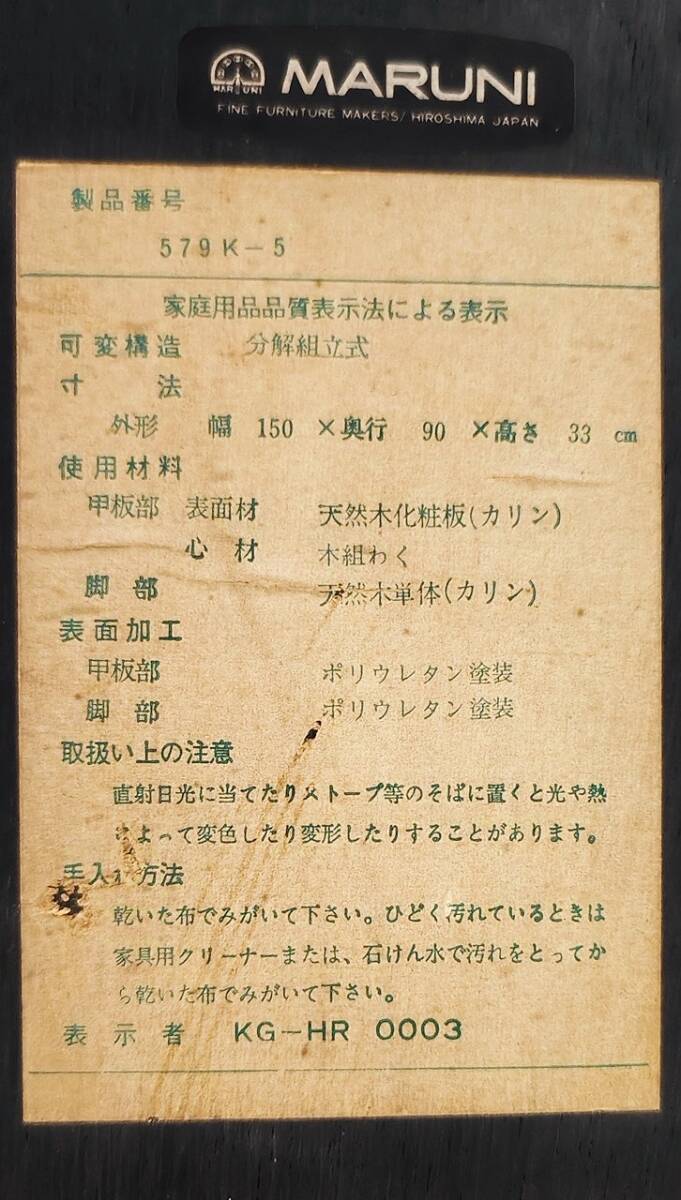 MARUNI
MARUNI
FINE FURNITURE MAKERS/HIROSHIMA JAPAN
製品番号
579K-5
家庭用品品質表示法による表示
可変構造 分解組立式
寸 法
外形 幅 150 ×奥行 90 ×高さ 33 cm
使用材料
甲板部 表面材 天然木化粧板(カリン)
心材 木組わく
脚部 天然木単体(カリン)
表面加工
甲板部 ポリウレタン塗装
脚部 ポリウレタン塗装
取扱い上の注意
直射日光に当てたりストーブ等のそばに置くと光や熱
によって変色したり変形したりすることがあります。
手入れ方法
乾いた布でみがいて下さい。ひどく汚れているときは
家具用クリーナーまたは、石けん水で汚れをとってか
ら乾いた布でみがいて下さい。
表示者 KG-HR 0003